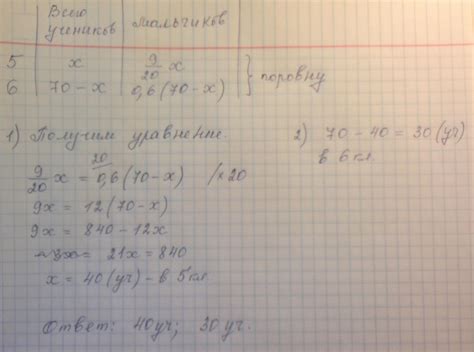 Всего учеников | Мальчиков
5 | x | 9/20 x
6 | 70-x | 0,6(70-x) } поровну
1) Получим уравнение.
9/20 x = 0,6(70-x) /×20
20
9x = 12(70-x)
9x = 840-12x
21x = 840
x = 40(уч) - в 5 кл
2) 70-40 = 30(уч)
в 6 кл.
Ответ: 40уч; 30 уч.